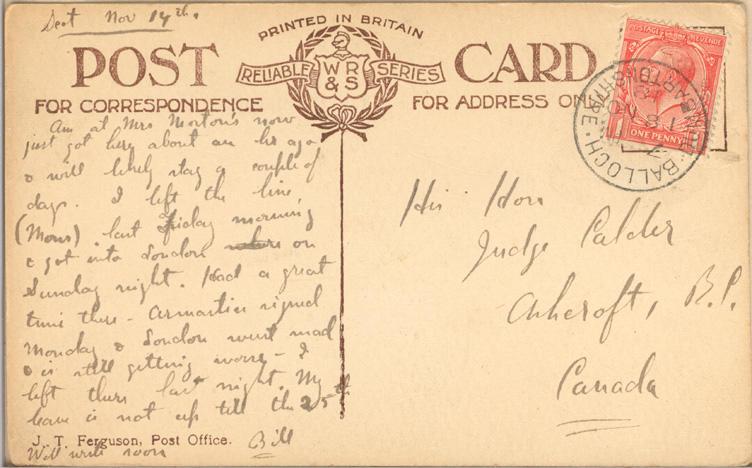 Scot Nov 14th.
PRINTED IN BRITAIN
POST CARD
RELIABLE WR & S SERIES
FOR CORRESPONDENCE
FOR ADDRESS ON
Am at Mrs Morton's now
just got here about an hr ago
& will likely stay a couple of
days. I left the line
(Mons) last Friday morning
& got into London on
Sunday night. Had a great
time there - Armastice signed
Monday & London went mad
& is still getting worse - I
left there last night. My
leave is not up till the 25th
J. T. Ferguson, Post Office.
Bill
Will write soon
POSTAGE REVENUE
ONE PENNY
BALLOCH
His Hon
Judge Calder
Ashcroft, B.C.
Canada